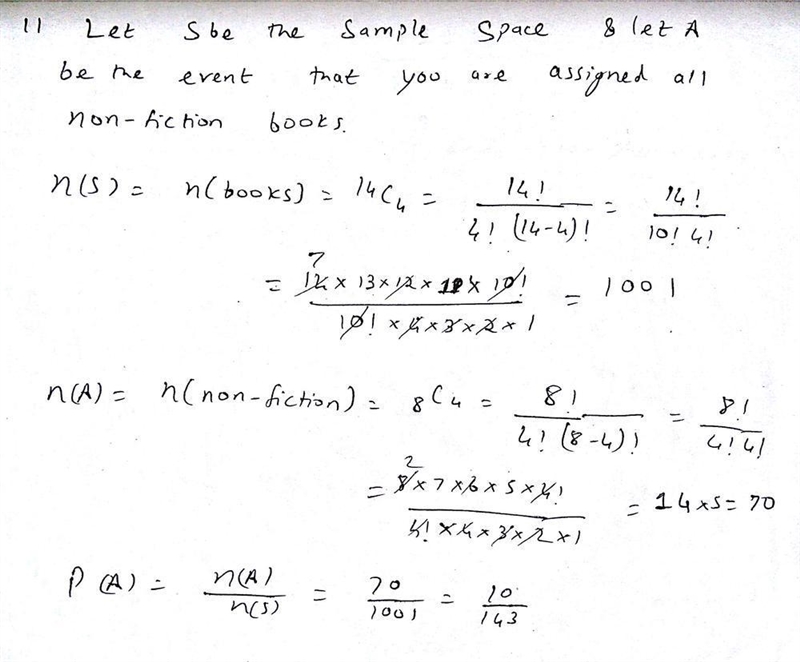 11 Let S be the Sample Space & let A
be the event that you are assigned all
non-fiction books.
n(S) = n(books) = 14C4 = 14! / 4! (14-4)! = 14! / 10! 4!
7
= 14 x 13 x 12 x 11 x 10! / 10! x 4 x 3 x 2 x 1 = 1001
n(A) = n(non-fiction) = 8C4 = 8! / 4! (8-4)! = 8! / 4! 4!
2
= 8 x 7 x 6 x 5 x 4! / 4! x 4 x 3 x 2 x 1 = 14 x 5 = 70
P(A) = n(A) / n(S) = 70 / 1001 = 10 / 143